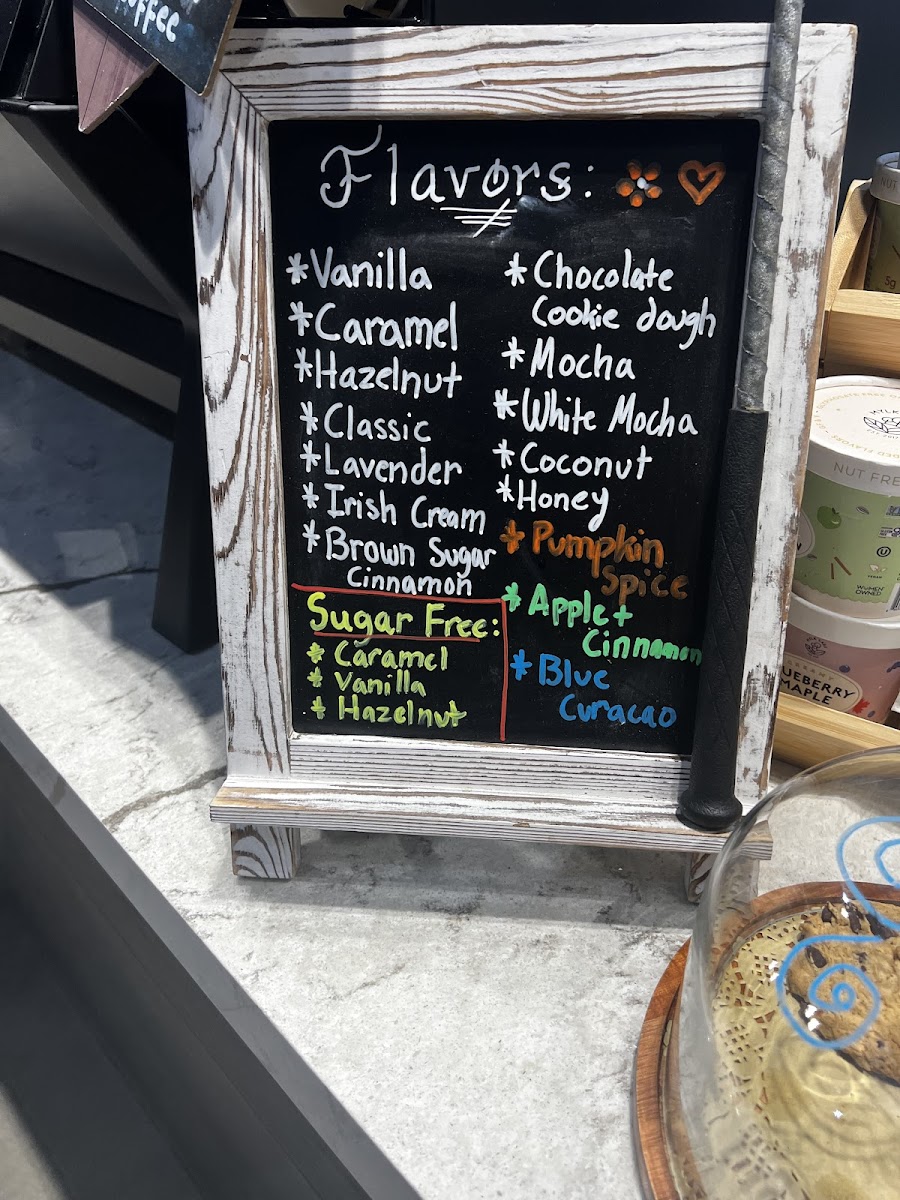 coffee
Flavors:
*Vanilla
*Caramel
*Hazelnut
*Classic
*Lavender
*Irish Cream
*Brown Sugar
Cinnamon
Sugar Free:
*Caramel
*Vanilla
*Hazelnut
*Chocolate
Cookie dough
*Mocha
*White Mocha
*Coconut
*Honey
*Pumpkin
Spice
*Apple+
Cinnamon
*Blue
Curacao
NUT
3g
NUT FRE
WOMEN
OWNED
UEBERRY
MAPLE